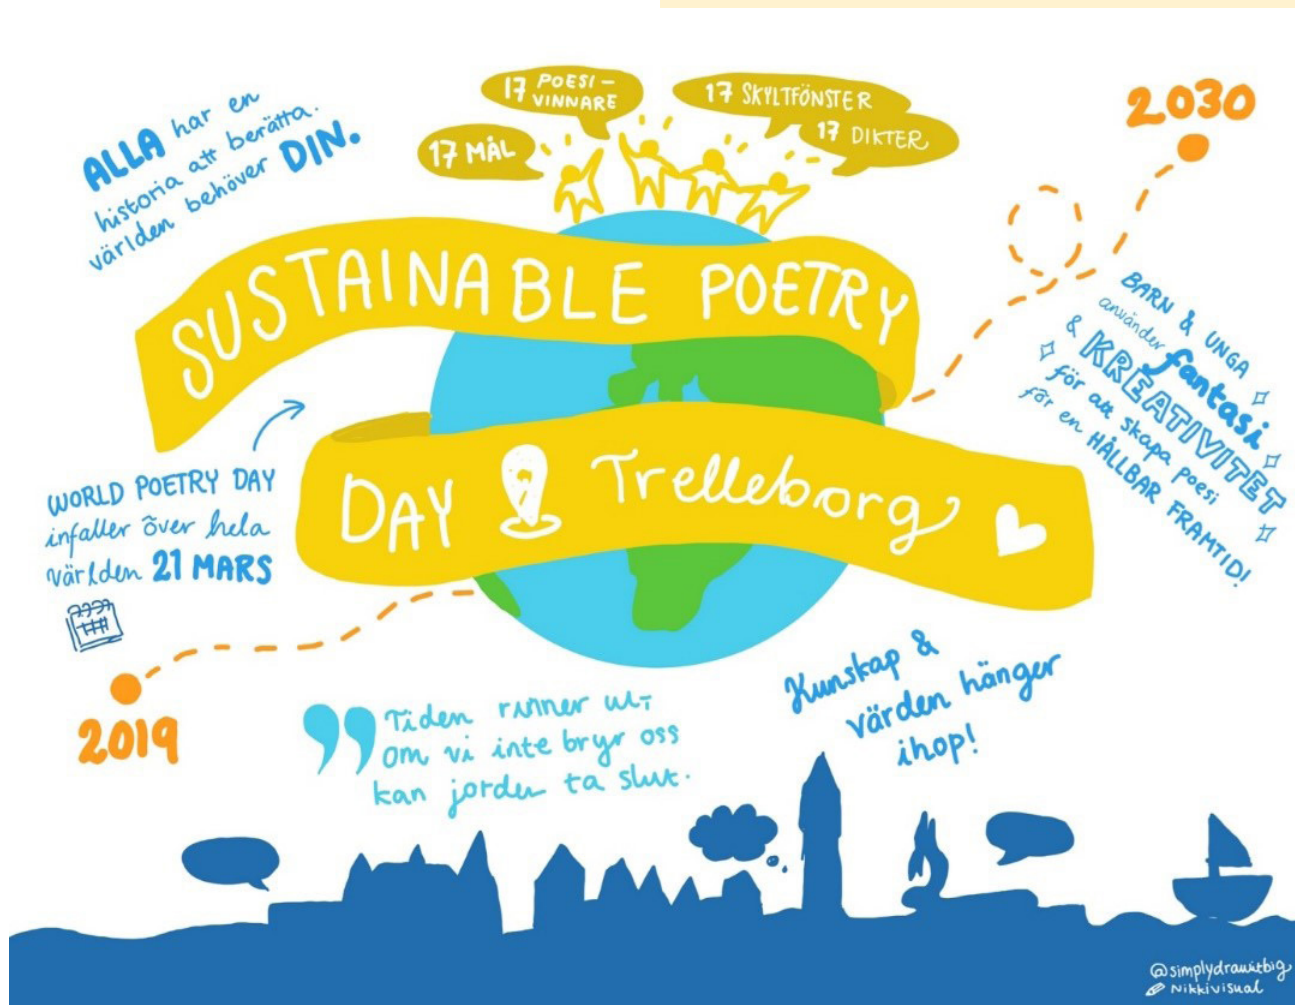 ALLA har en
historia att berätta.
världen behöver DIN.
17 MÅL
17 POESI-
VINNARE
17 SKYLTFÖNSTER
17 DIKTER
2030
SUSTAINABLE POETRY
DAY Trelleborg
BARN & UNGA
använder fantasi
& KREATIVITET
för att skapa poesi
för en HÅLLBAR FRAMTID!
WORLD POETRY DAY
infaller över hela
världen 21 MARS
2019
" Tiden rinner ut,
om vi inte bryr oss
kan jorden ta slut.
Kunskap &
värden hänger
ihop!
@simplydrawitbig
Nikkivisual